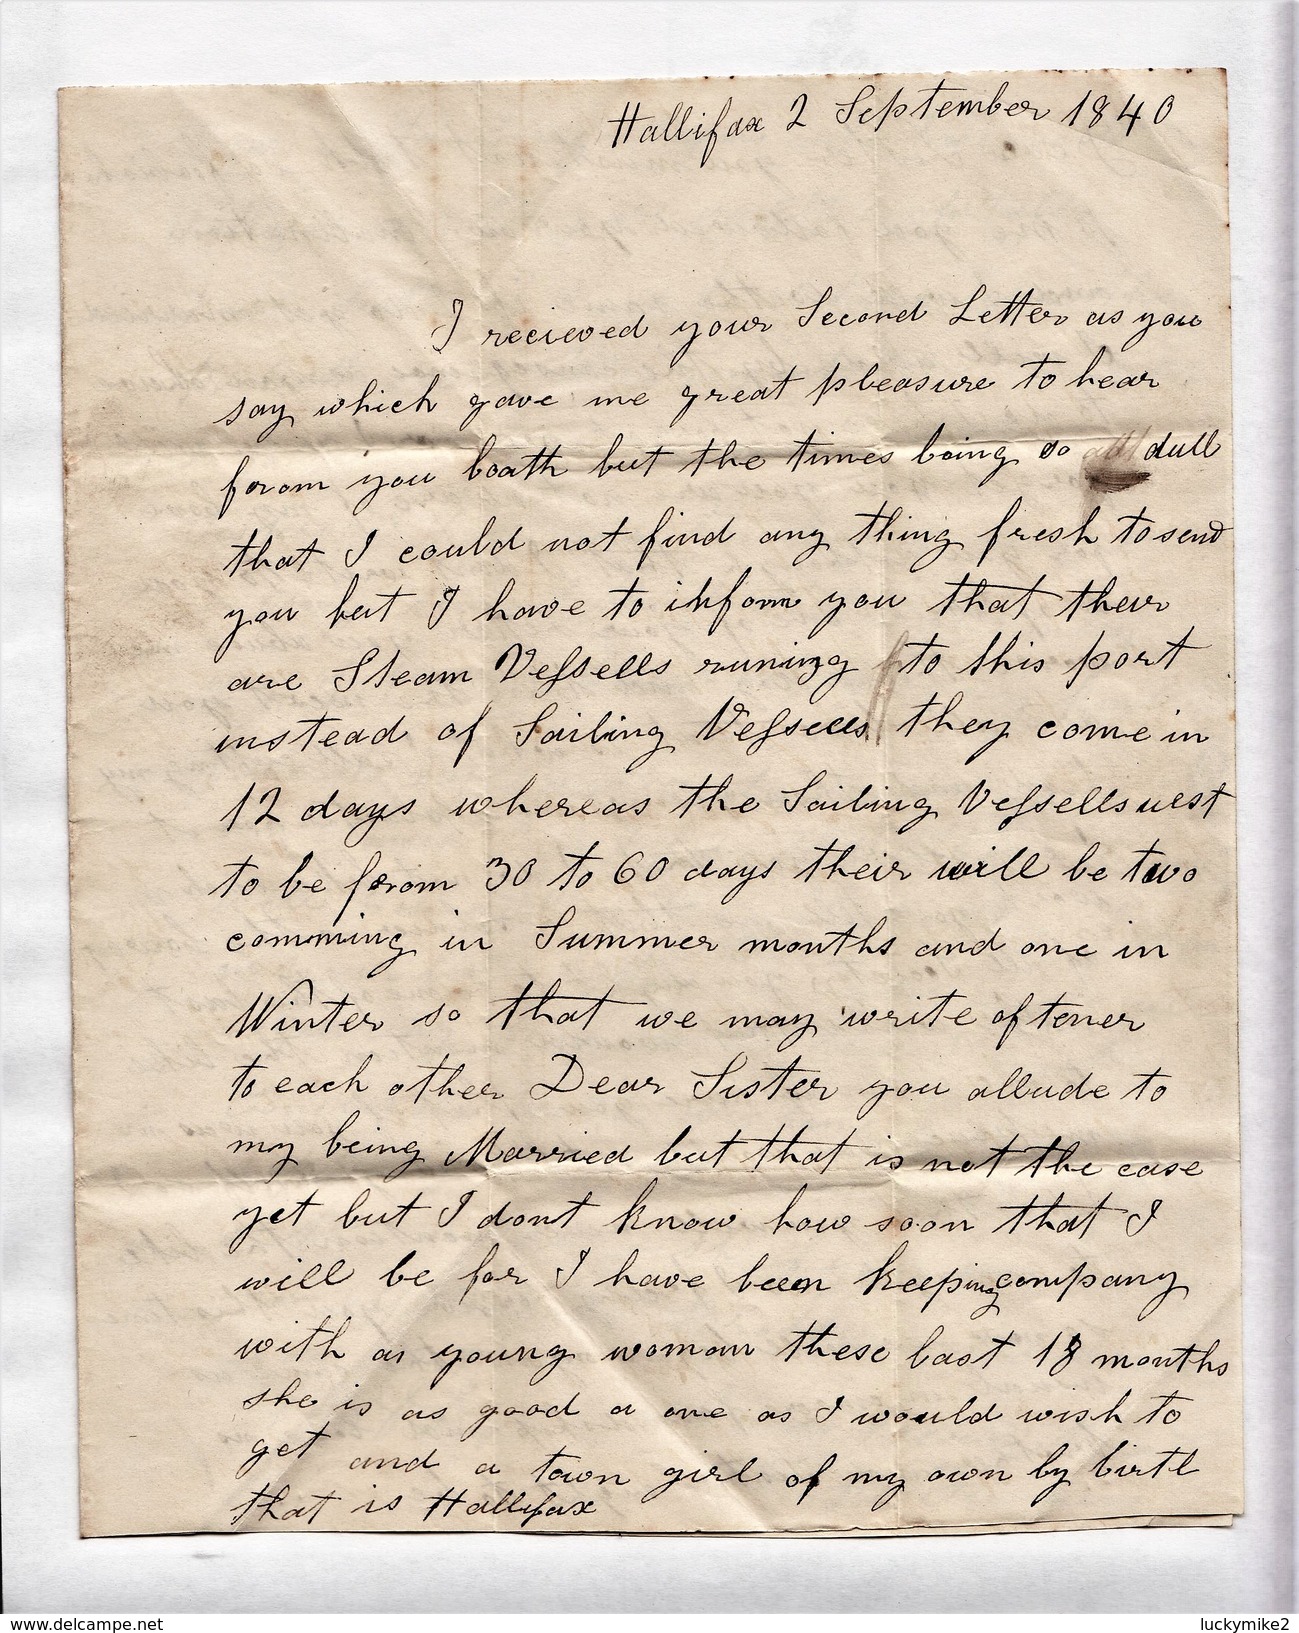 Hallifax 2 September 1840
I recieved your Second Letter as you
say which gave me great pleasure to hear
forom you boath but the times being so dull
that I could not find any thing fresh to send
you but I have to inform you that their
are Steam Vessells runing to this port
instead of Sailing Vessells they come in
12 days whereas the Sailing Vessells uest
to be forom 30 to 60 days their will be two
comming in Summer months and one in
Winter so that we may write oftener
to each other Dear Sister you allude to
my being Married but that is not the case
yet but I dont know how soon that I
will be for I have been keeping company
with a young woman these last 18 months
she is as good a one as I would wish to
get and a town girl of my own by birth
that is Hallifax
www.delcampe.net
luckymike2